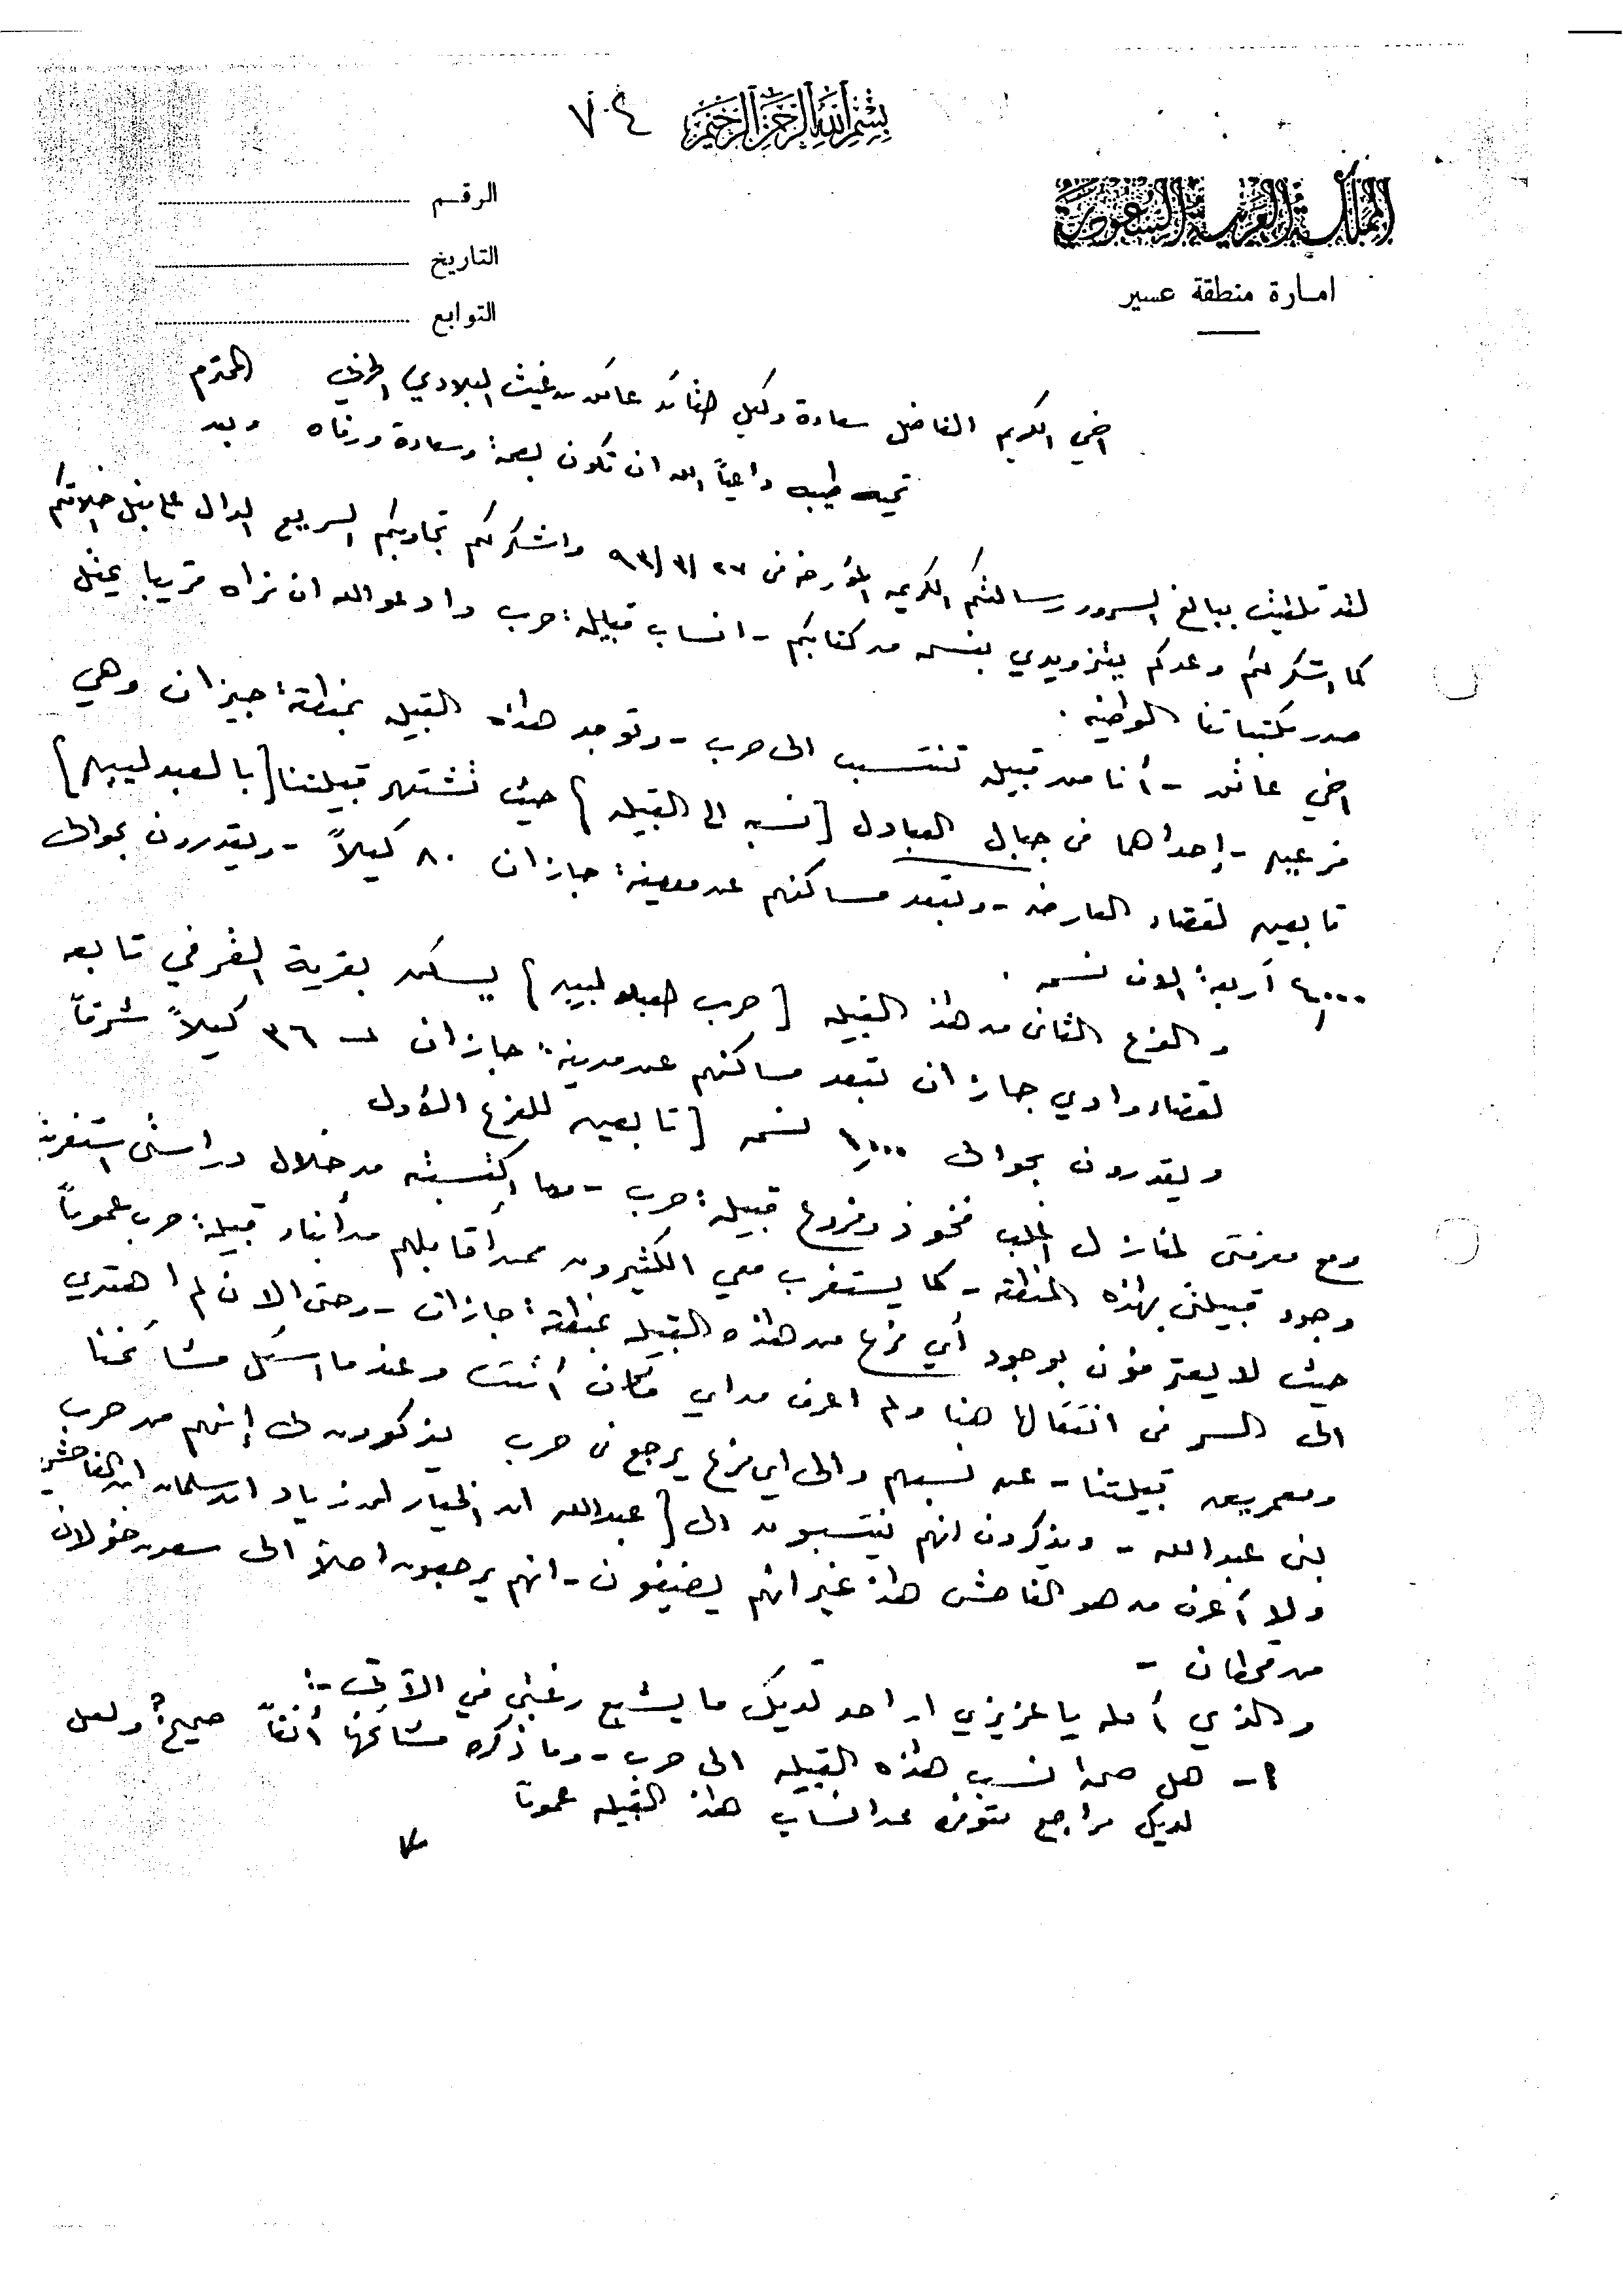 بسم الله الرحمن الرحيم
٧٠٤
المملكة العربية السعودية
امارة منطقة عسير
الرقم
التاريخ
التوابع
اخي الكريم الفاضل سعادة وكيل القائد عاتق بن غيث البلادي الحربي المحترم
تحيه طيبه داعياً الله ان تكون بصحة وسعادة ورفاه وبعد
لقد تلقيت ببالغ السرور رسالتكم الكريمه المؤرخه في ٩٣/٣/٢٧ واشكر لكم تجاوبكم السريع الدال على نبل اخلاقكم
كما اشكر لكم وعدكم بتزويدي بنسخه من كتابكم - انساب قبيلة حرب وادعو الله ان نراه قريبا يحتل
صدر مكتباتنا الوطنيه .
اخي عاتق - أنا من قبيله تنتسب الى حرب - وتوجد هذه القبيله بمنطقة جيزان وهي
فرعين - إحداهما في جبال العبادل [نسبه الى القبيله] حيث تشتهر قبيلتنا [بالعبدليين]
تابعين لقضاء العارضه - وتبعد مساكنهم عن مدينة جازان ٨٠ كيلاً - ويقدرون بحوالى
٤,٠٠٠ أربعة الاف نسمه .
والفرع الثاني من هذه القبيله [حرب العبدليين] يسكن بقرية الغرفي تابعه
لقضاء وادي جازان تبعد مساكنهم عن مدينة جازان ٣٦ كيلاً شرقاً
ويقدرون بحوالى ١,٠٠٠ نسمه [تابعين للفرع الأول
ومع معرفتي لمنازل اغلب فخوذ وفروع قبيلة حرب - مما إكتسبته من خلال دراستي استغرب
وجود قبيلتي بهذه المنطقه - كما يستغرب معي الكثيرون ممن أقابلهم من أبناء قبيلة حرب عموماً
حيث لا يعترفون بوجود أي فرع من هذه القبيله بمنطقة جازان - وحتى الان لم اهتدي
الى السر في انتقالها هنا ولم اعرف من اي مكان أتت وعندما اسئل مشائخنا
ومعمرين قبيلتنا - عن نسبهم والى اي فرع يرجع في حرب يذكرون لى إنهم من حرب
بني عبدالله - ويذكرون انهم ينتسبون الى [عبدالله ابن الخيار ابن زياد ابن سلمان ابن الفاحش
ولا أعرف من هو الفاحش هذا غير انهم يضيفون - انهم يرجعون اصلاً الى سعد بن خولان
من قحطان -
والذي آمله يا عزيزي ان اجد لديك ما يشبع رغبتي في الآتي :-
١- هل صحة نسب هذه القبيله الى حرب - وما ذكره مشائخها أنفاً صحيح؟ ولعل
لديك مراجع متوفره عن انساب هذه القبيله عموماً